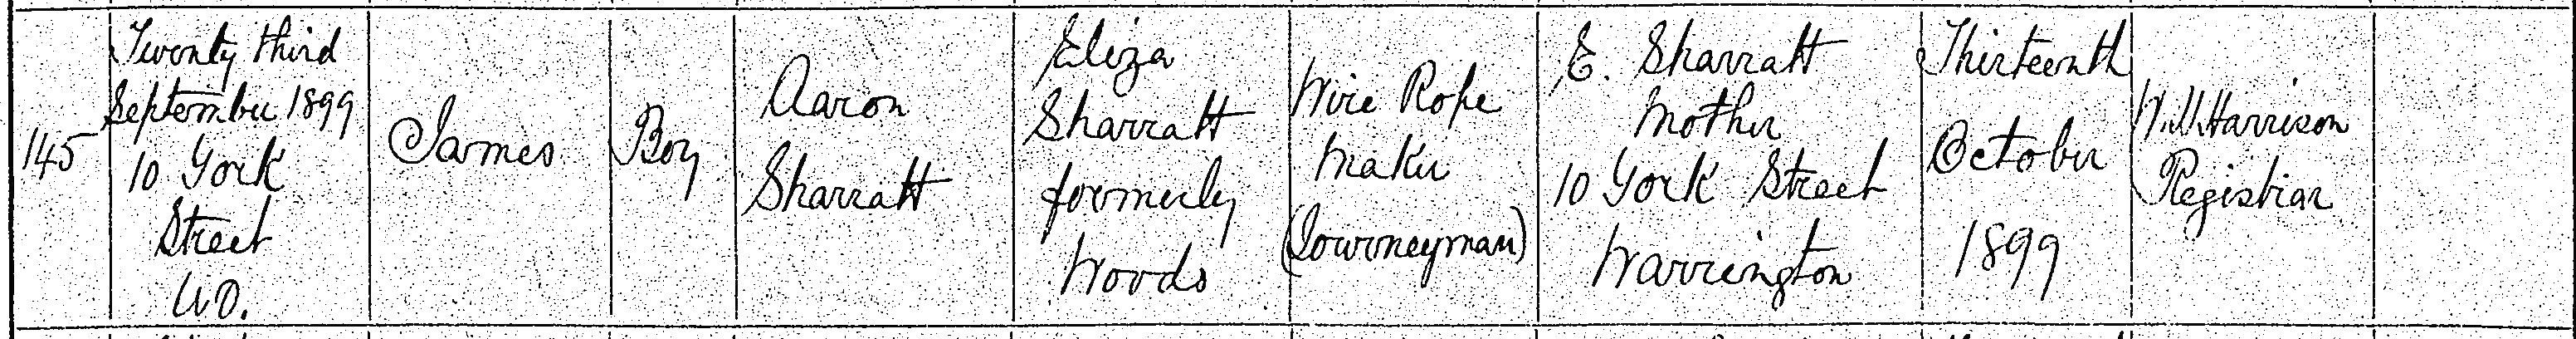 145
Twenty third
September 1899
10 York
Street
U.D.
James
Boy
Aaron
Sharratt
Eliza
Sharratt
formerly
Woods
Wire Rope
Maker
(Journeyman)
E. Sharratt
Mother
10 York Street
Warrington
Thirteenth
October
1899
Harrison
Registrar